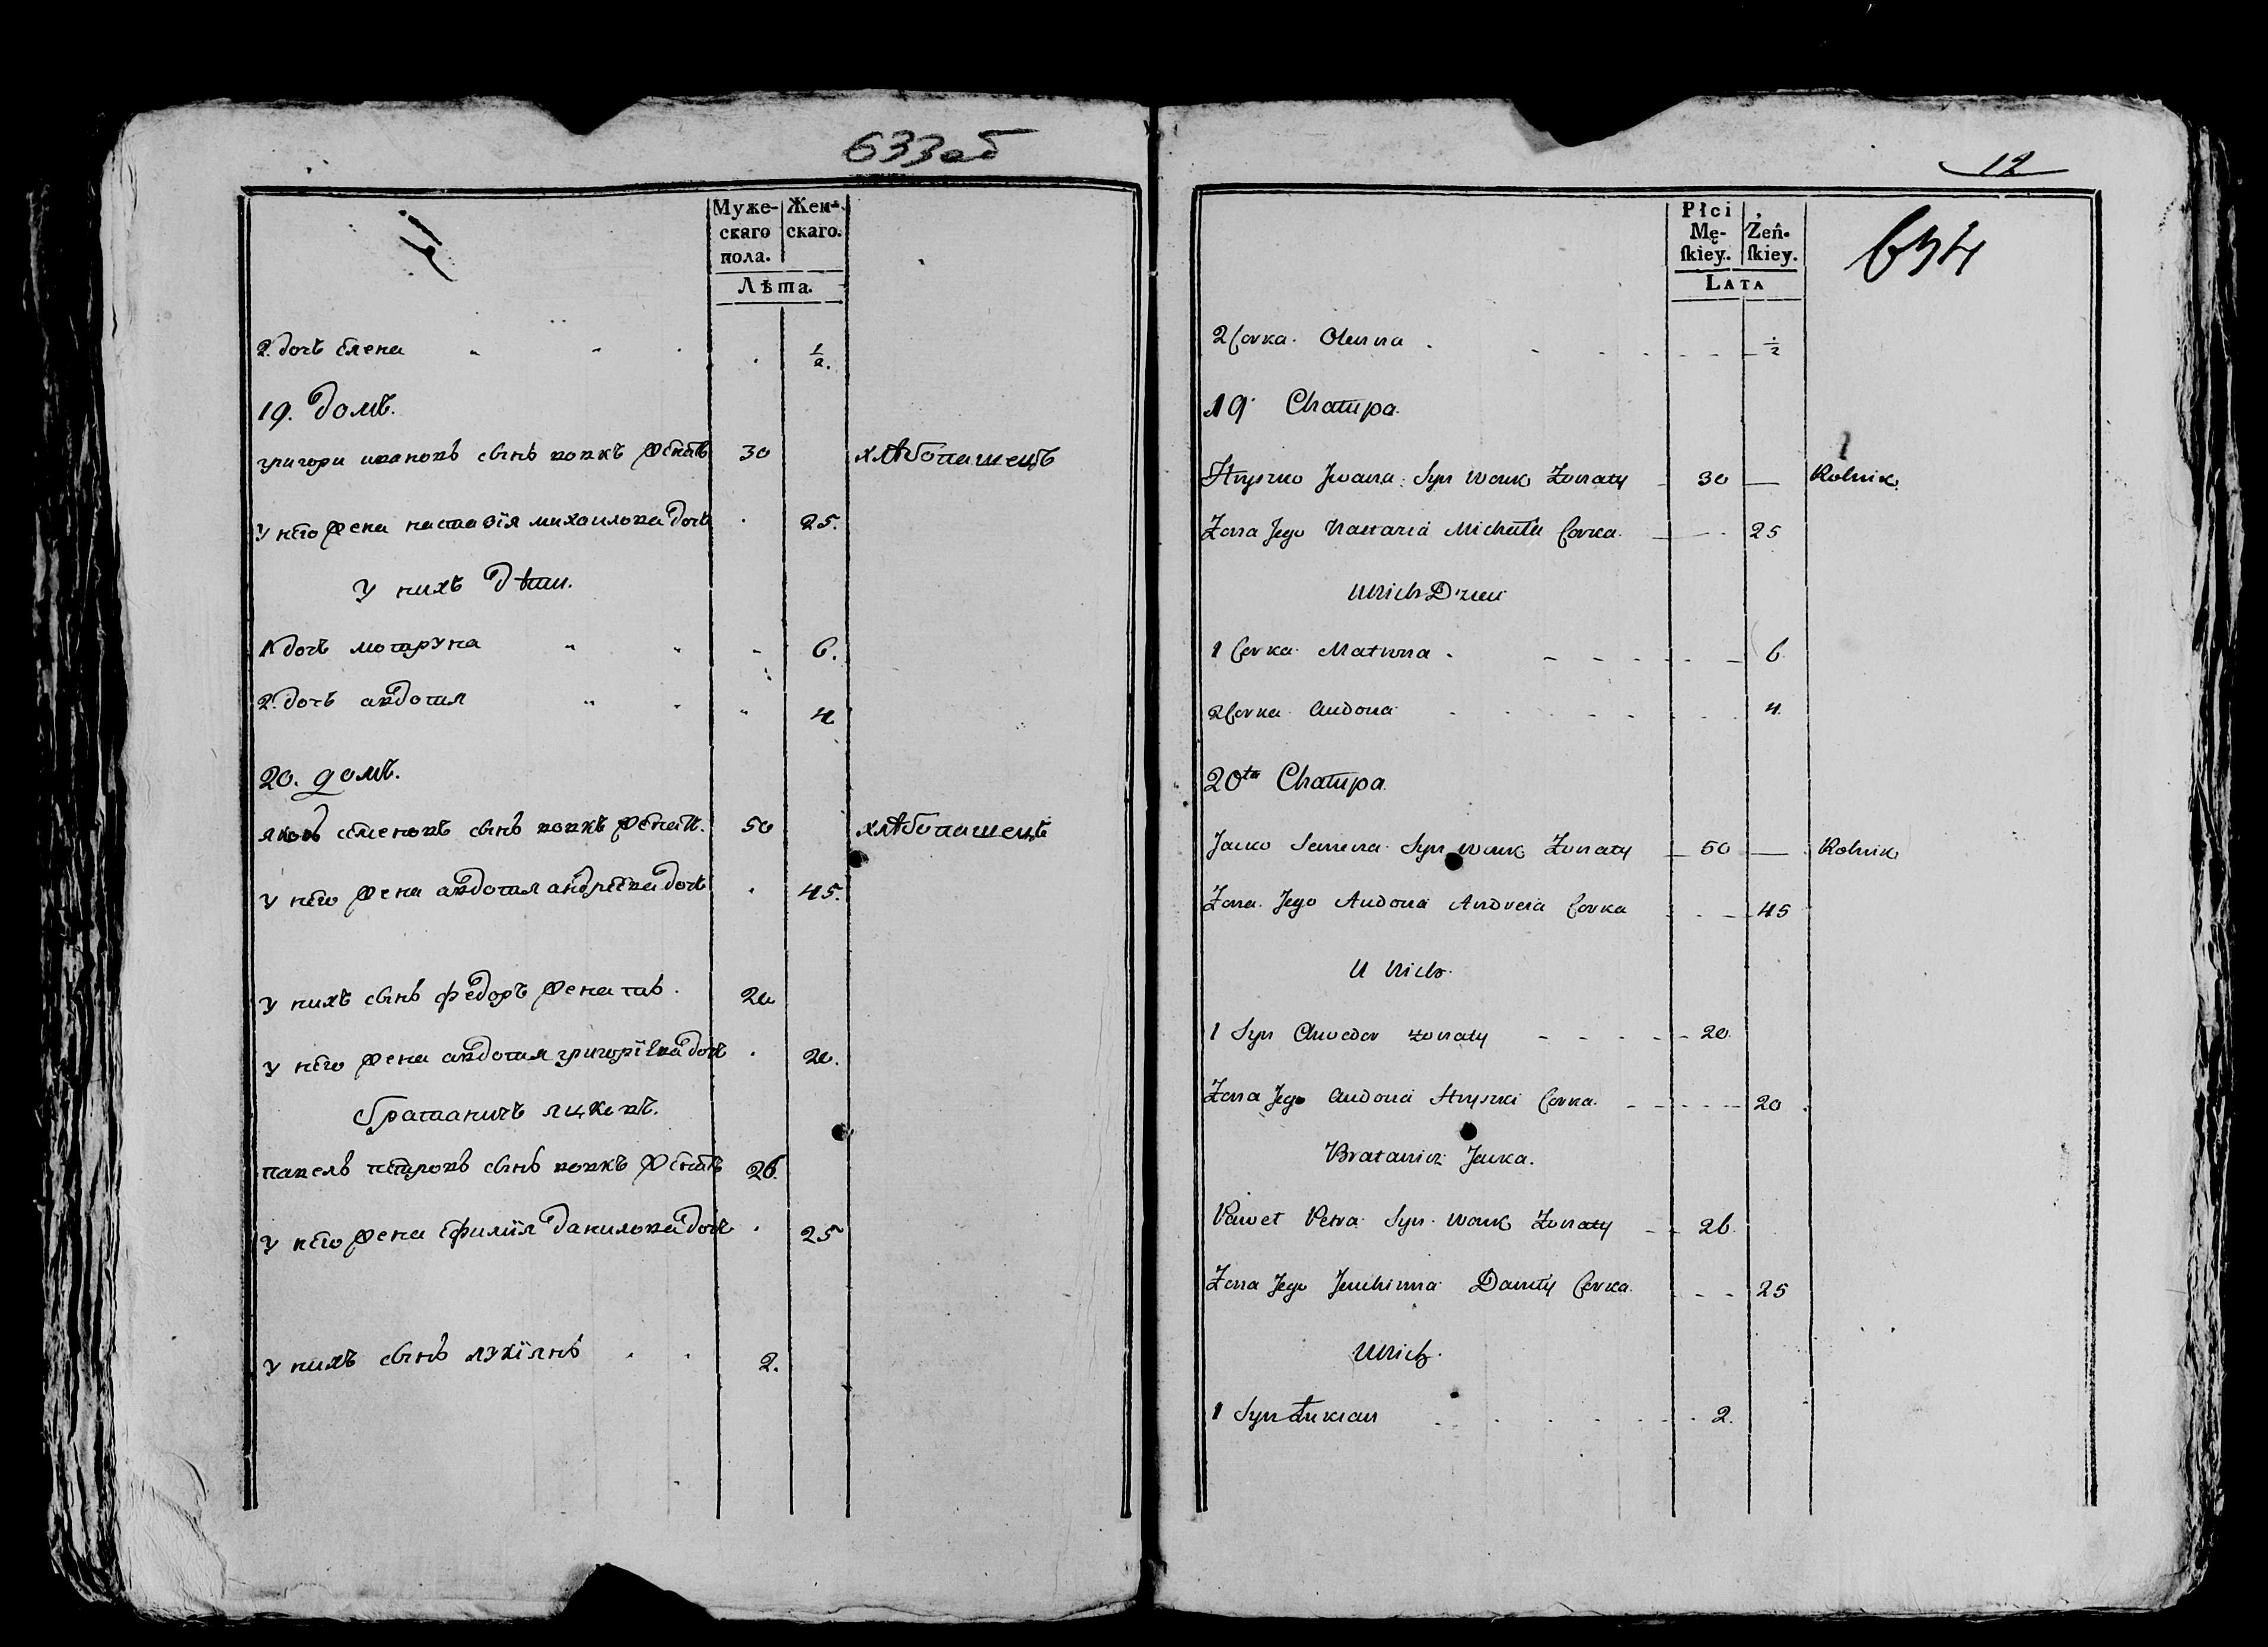 633 об
Муже-
скаго
пола.
Жен-
скаго.
Лѣта.
2. дочь елена 1/2.
19. домъ.
григори ивановъ сынъ вовкъ женатъ 30 хлѣбопашецъ
у него жена настасїя михаилова дочь 25.
у нихъ дѣти.
1 дочь мотруна 6.
2. дочь авдотия 4
20. домъ.
яковъ семеновъ сынъ вовкъ женат. 50 хлѣбопашецъ
у него жена авдотия андреева дочь 45.
у нихъ сынъ федоръ женатъ. 20
у него жена авдотия григорїева дочь 20.
братаничъ яцковъ.
павелъ петровъ сынъ вовкъ женатъ 26.
у него жена ефимїя данилова дочь 25
у нихъ сынъ лукїянъ 2.
12
634
Płci
Mę-
skiey.
Żeń-
skiey.
LATA
2 Corka Olenna 1/2
19 Chałupa.
Hryszko Jwana Syn Wowk Żonaty 30 — Rolnik
Żona Jego Nastazia Michała Corka 25
U Nich Dzieci
1 Corka Matrona 6
2 Corka Audocia 4
20ta Chałupa
Jacko Semena Syn Wowk Żonaty 50 — Rolnik
Żona Jego Audocia Andreia Corka 45
U Nich
1 Syn Chwedor żonaty 20
Żona Jego Audocia Hryszki Corka 20
Bratanicz Jacka.
Paweł Petra Syn Wowk Żonaty 26
Żona Jego Jeuchimia Daniły Corka 25
U Nich
1 Syn Łukian 2.